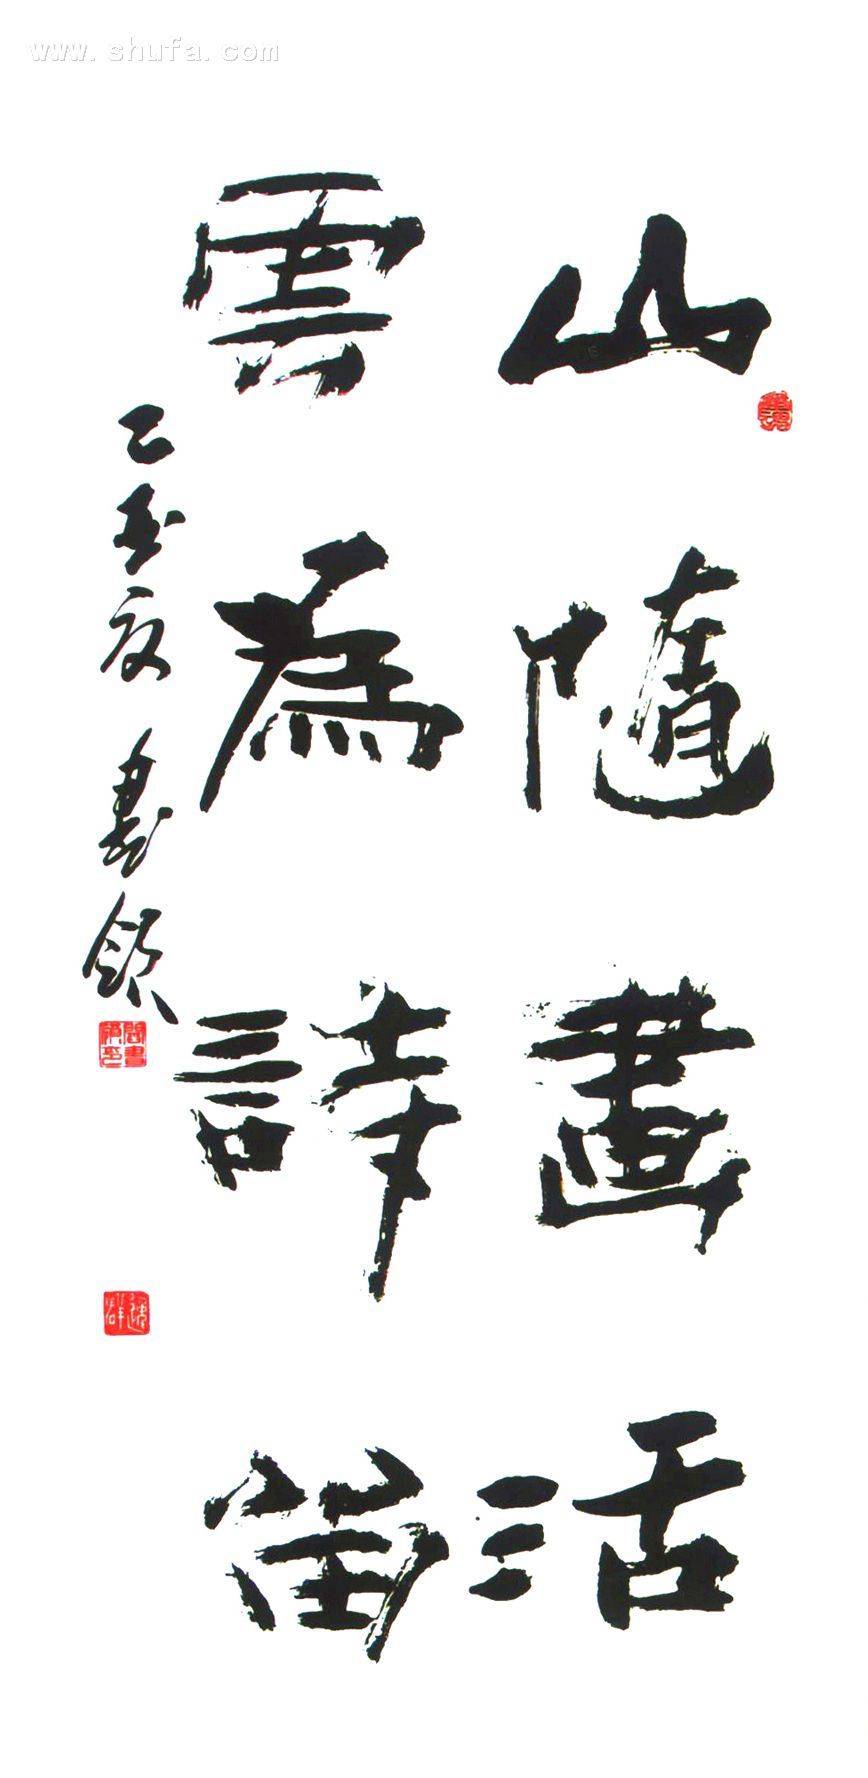 www.shufa.com
山隨畫活
雲為詩留
乙亥夏 書領